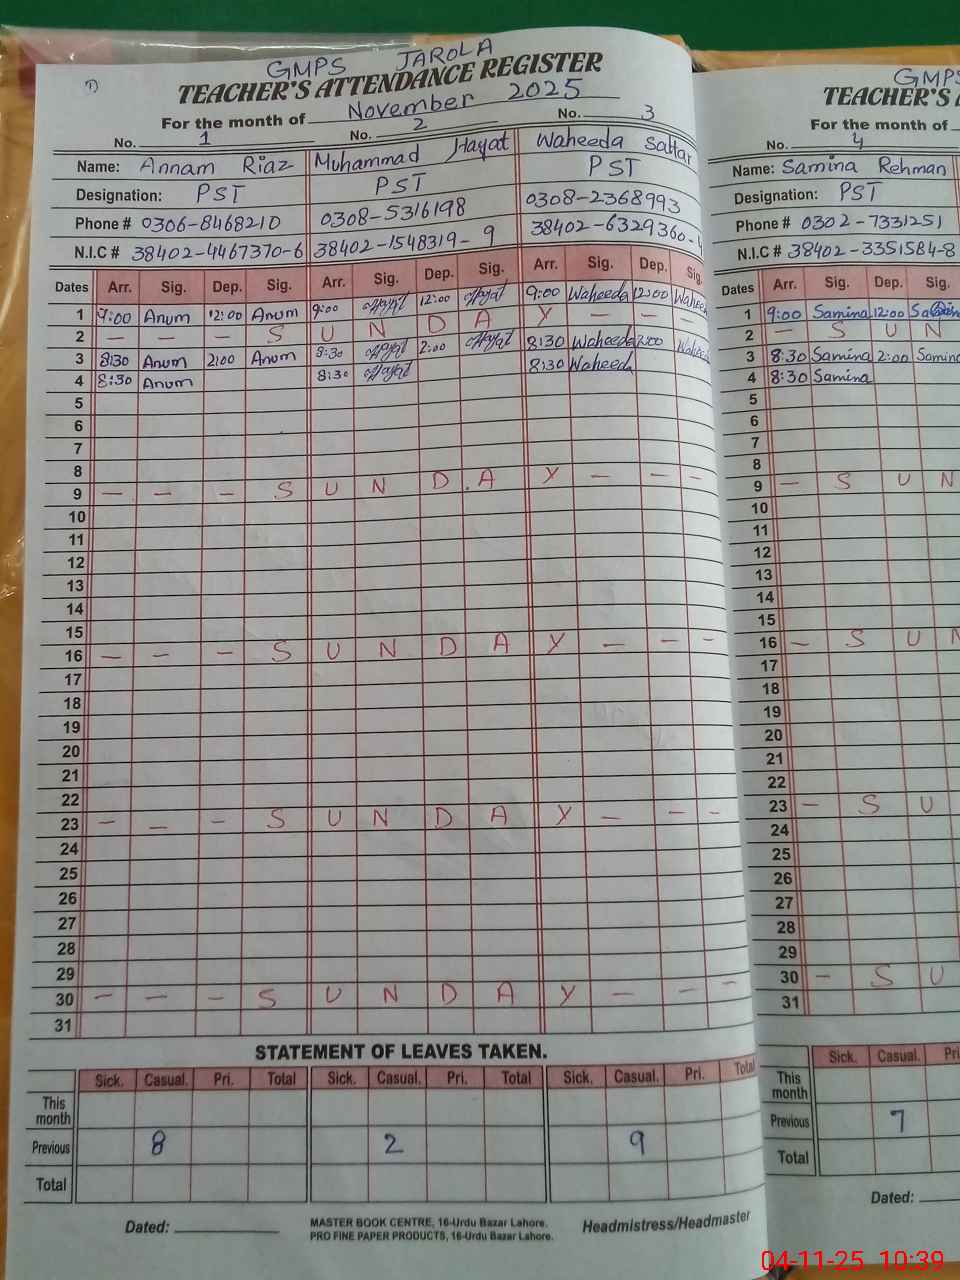 1
GMPS JAROLA
TEACHER'S ATTENDANCE REGISTER
For the month of November 2025
No. 1 No. 2 No. 3
Name: Annam Riaz Muhammad Hayat Waheeda Sattar
Designation: PST PST PST
Phone # 0306-8468210 0308-5316198 0308-2368993
N.I.C # 38402-4467370-6 38402-1548319-9 38402-6329360-4
Dates Arr. Sig. Dep. Sig. Arr. Sig. Dep. Sig. Arr. Sig. Dep. Sig.
1 9:00 Anum 12:00 Anum 9:00 Hayat 12:00 Hayat 9:00 Waheeda 12:00 Waheed
2 — — — S U N D A Y — — —
3 8:30 Anum 2:00 Anum 8:30 Hayat 2:00 Hayat 8:30 Waheeda 2:00 Wahee
4 8:30 Anum 8:30 Hayat 8:30 Waheed
5
6
7
8
9 — — — S U N D A Y — — —
10
11
12
13
14
15
16 — — — S U N D A Y — — —
17
18
19
20
21
22
23 — — — S U N D A Y — — —
24
25
26
27
28
29
30 — — — S U N D A Y — — —
31
STATEMENT OF LEAVES TAKEN.
Sick. Casual. Pri. Total Sick. Casual. Pri. Total Sick. Casual. Pri. Total
This month
Previous 8 2 9
Total
Dated:
MASTER BOOK CENTRE, 16-Urdu Bazar Lahore.
PRO FINE PAPER PRODUCTS, 16-Urdu Bazar Lahore.
Headmistress/Headmaster
GMPS
TEACHER'S A
For the month of
No. 4
Name: Samina Rehman
Designation: PST
Phone # 0302-7331251
N.I.C # 38402-3351584-8
Dates Arr. Sig. Dep. Sig.
1 9:00 Samina 12:00
2 — S U N
3 8:30 Samina 2:00 Samina
4 8:30 Samina
5
6
7
8
9 — S U N
10
11
12
13
14
15
16 — S U N
17
18
19
20
21
22
23 — S U
24
25
26
27
28
29
30 — S U
31
Sick. Casual. Pri
This month
Previous 7
Total
Dated:
04-11-25 10:39